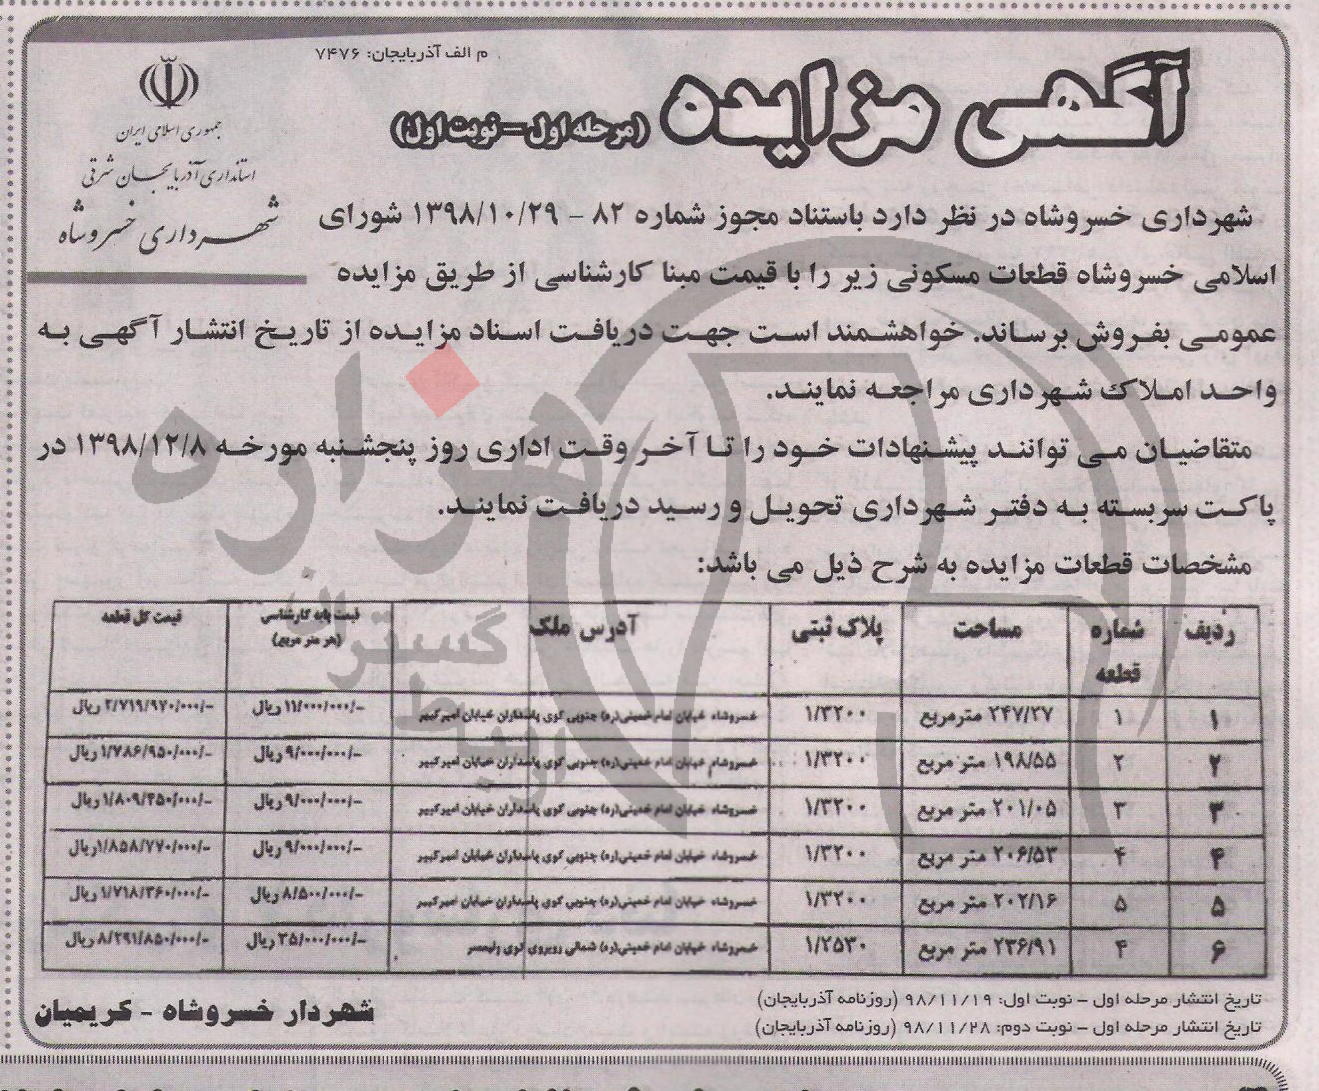 م الف آذربایجان: ۷۴۷۶
آگهی مزایده (مرحله اول – نوبت اول)
جمهوری اسلامی ایران
استانداری آذربایجان شرقی
شهرداری خسروشاه
شهرداری خسروشاه در نظر دارد باستناد مجوز شماره ۸۲ – ۱۳۹۸/۱۰/۲۹ شورای
اسلامی خسروشاه قطعات مسکونی زیر را با قیمت مبنا کارشناسی از طریق مزایده
عمومی بفروش برساند. خواهشمند است جهت دریافت اسناد مزایده از تاریخ انتشار آگهی به
واحد املاک شهرداری مراجعه نمایند.
متقاضیان می توانند پیشنهادات خود را تا آخر وقت اداری روز پنجشنبه مورخه ۱۳۹۸/۱۲/۸ در
پاکت سربسته به دفتر شهرداری تحویل و رسید دریافت نمایند.
مشخصات قطعات مزایده به شرح ذیل می باشد:
ردیف شماره قطعه مساحت پلاک ثبتی آدرس ملک قیمت پایه کارشناسی (هر متر مربع) قیمت کل قطعه
۱ ۱ ۲۴۷/۲۷ مترمربع ۱/۳۲۰۰ خسروشاه خیابان امام خمینی(ره) جنوبی کوی پاسداران خیابان امیرکبیر ۱۱/۰۰۰/۰۰۰/- ریال ۲/۷۱۹/۹۷۰/۰۰۰/- ریال
۲ ۲ ۱۹۸/۵۵ متر مربع ۱/۳۲۰۰ خسروشاه خیابان امام خمینی(ره) جنوبی کوی پاسداران خیابان امیرکبیر ۹/۰۰۰/۰۰۰/- ریال ۱/۷۸۶/۹۵۰/۰۰۰/- ریال
۳ ۳ ۲۰۱/۰۵ متر مربع ۱/۳۲۰۰ خسروشاه خیابان امام خمینی(ره) جنوبی کوی پاسداران خیابان امیرکبیر ۹/۰۰۰/۰۰۰/- ریال ۱/۸۰۹/۴۵۰/۰۰۰/- ریال
۴ ۴ ۲۰۶/۵۳ متر مربع ۱/۳۲۰۰ خسروشاه خیابان امام خمینی(ره) جنوبی کوی پاسداران خیابان امیرکبیر ۹/۰۰۰/۰۰۰/- ریال ۱/۸۵۸/۷۷۰/۰۰۰/- ریال
۵ ۵ ۲۰۲/۱۶ متر مربع ۱/۳۲۰۰ خسروشاه خیابان امام خمینی(ره) جنوبی کوی پاسداران خیابان امیرکبیر ۸/۵۰۰/۰۰۰/- ریال ۱/۷۱۸/۳۶۰/۰۰۰/- ریال
۶ ۴ ۲۳۶/۹۱ متر مربع ۱/۲۵۳۰ خسروشاه خیابان امام خمینی(ره) شمالی روبروی کوی ولیعصر ۳۵/۰۰۰/۰۰۰/- ریال ۸/۲۹۱/۸۵۰/۰۰۰/- ریال
تاریخ انتشار مرحله اول – نوبت اول: ۹۸/۱۱/۱۹ (روزنامه آذربایجان)
تاریخ انتشار مرحله اول – نوبت دوم: ۹۸/۱۱/۲۸ (روزنامه آذربایجان)
شهردار خسروشاه - کریمیان
هزاره
گستر